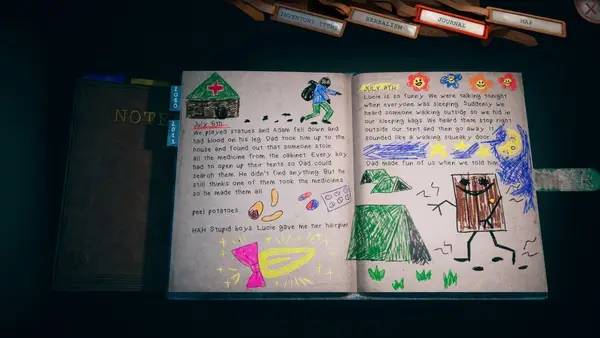 INVENTORY ITEMS
HERBALISM
JOURNAL
MAP
X
NOTE
2010
2011
July 5th
We played statues and Adam fell down and
had blood on his leg. Dad took him up to the
house and found out that someone stole
all the medicine from the cabinet. Every boy
had to open up their tents so Dad could
search them. He didn't find anything. But he
still thinks one of them took the medicines
so he made them all
peel potatoes.
HAH Stupid boys. Lucie gave me her hairpin!
July 8th
Lucie is so funny. We were talking tonight
when everyone was sleeping. Suddenly we
heard someone walking outside so we hid in
our sleeping bags. We heard them stop right
outside our tent and then go away. It
sounded like a walking squeaky door.
Dad made fun of us when we told him.